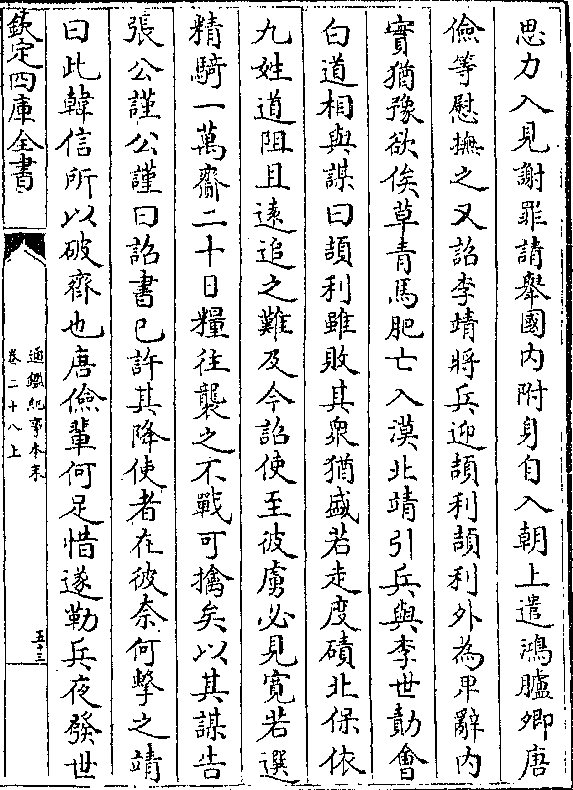 思力入見謝罪請舉國内附身自入朝上遣鴻臚卿唐
儉等慰撫之又詔李靖將兵迎頡利頡利外為卑辭内
實猶豫欲俟草青馬肥亡入漠北靖引兵與李世勣會
白道相與謀曰頡利雖敗其衆猶盛若走度磧北保依
九姓道阻且逺追之難及今詔使至彼虜必見寛若選
精騎一萬齎二十日糧往襲之不戰可擒矣以其謀告
張公謹公謹曰詔書已許其降使者在彼奈何擊之靖
曰此韓信所以破齊也唐儉輩何足惜遂勒兵夜發世
欽定四庫全書
通鑑紀事本末
卷二十八上
五十三